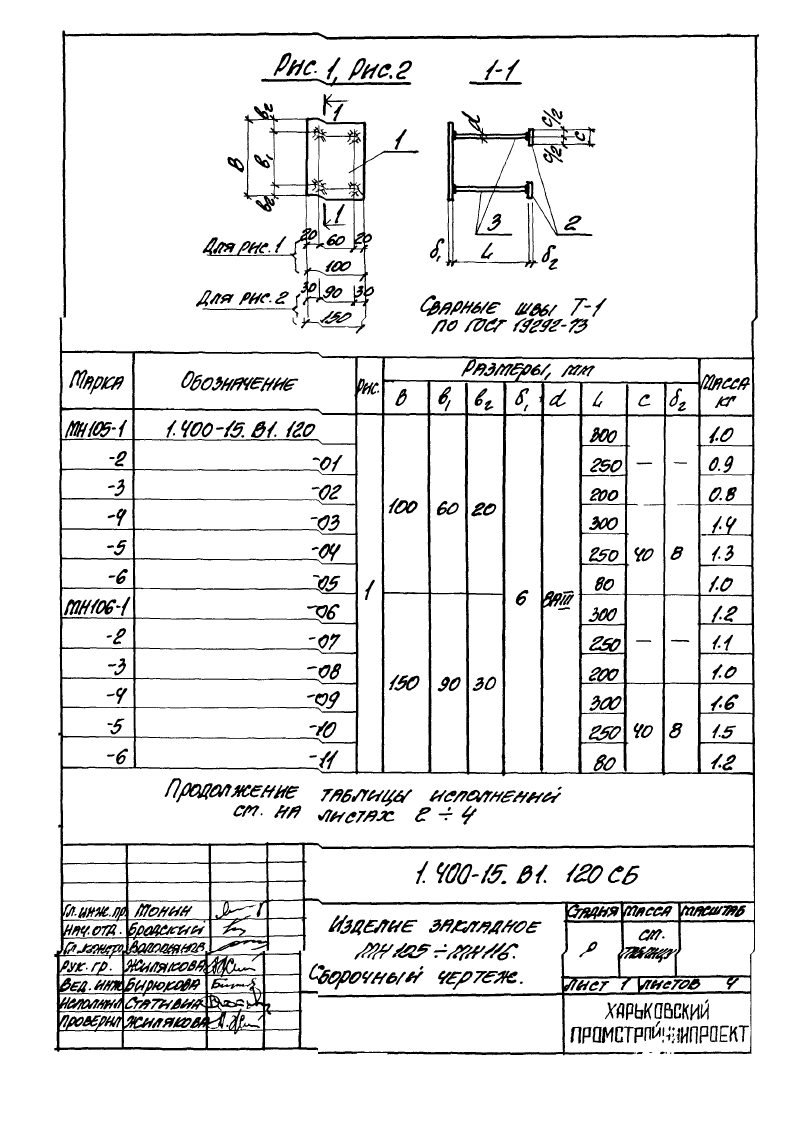 Рис. 1, Рис. 2
1-1
1
1
1
B
в₂
в₁
в₂
20 60 20
Для рис. 1
100
30 90 30
Для рис. 2
150
d
c/2
c/2
c
3
2
δ₁
L
δ₂
Сварные швы Т-1
по ГОСТ 19292-73
Марка Обозначение Рис. Размеры, мм Масса кг
B в₁ в₂ δ₁ d L c δ₂
МН105-1 1.400-15. В1. 120 1 100 60 20 6 8АIII 300 — — 1.0
-2 -01 250 0.9
-3 -02 200 0.8
-4 -03 300 40 8 1.4
-5 -04 250 1.3
-6 -05 80 1.0
МН106-1 -06 150 90 30 300 — — 1.2
-2 -07 250 1.1
-3 -08 200 1.0
-4 -09 300 40 8 1.6
-5 -10 250 1.5
-6 -11 80 1.2
Продолжение таблицы исполнений
см. на листах 2 ÷ 4
1.400-15. В1. 120 СБ
Гл. инж. пр. Монин
Нач. отд. Бродский
Гл. констр.
Рук. гр. Жилякова
Вед. инж. Бирюкова
Исполнил Стативка
Проверил Жилякова
Изделие закладное
МН105 ÷ МН116.
Сборочный чертеж.
Стадия Масса Масштаб
Р см. таблицу
Лист 1 Листов 4
ХАРЬКОВСКИЙ
ПРОМСТРОЙНИИПРОЕКТ